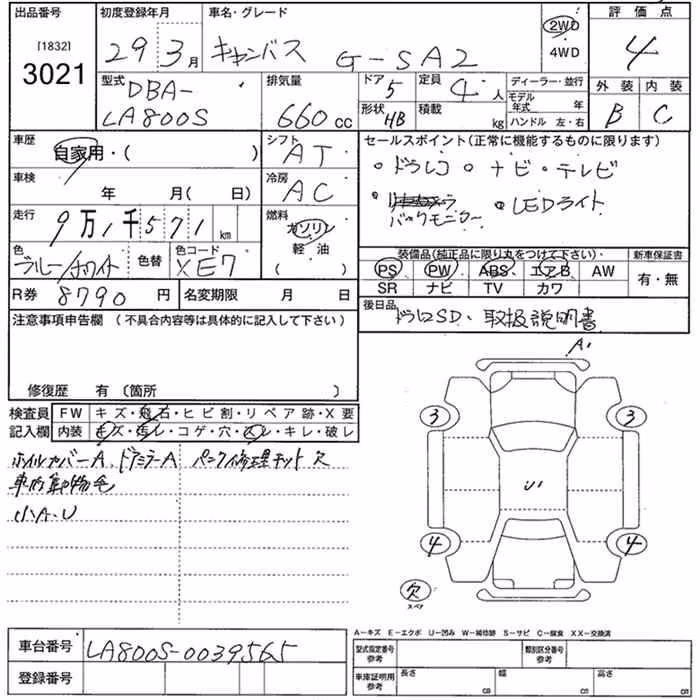 出品番号 初度登録年月 車名・グレード 評価点
[1832]
3021 29 3月 キャンバス G-SA2 2WD 4WD 4
型式 DBA-LA800S 排気量 660 cc ドア 5 定員 4人 ディーラー・並行
形状 HB 積載 kg モデル年式 年 ハンドル 左・右
外装 内装
B C
車歴 自家用・( )
シフト AT
セールスポイント(正常に機能するものに限ります)
・ドラレコ ・ナビ・テレビ
・バックモニター ・LEDライト
車検 年 月( 日)
冷房 AC
走行 9万1千571 km
燃料 ガソリン 軽油 ( )
色 ブルー/ホワイト 色替 色コード XE7
装備品(純正品に限り丸をつけて下さい) 新車保証書
PS PW ABS エアB AW 有・無
SR ナビ TV カワ
R券 8790 円 名変期限 月 日
後日品
ドラレコSD、取扱説明書
注意事項申告欄(不具合内容等は具体的に記入して下さい)
修復歴 有(箇所 )
検査員記入欄
FW キズ・飛石・ヒビ割・リペア跡・X要
内装 キズ・汚レ・コゲ・穴・スレ・キレ・破レ
ホイルカバーA、ドアミラーA パンク修理キット欠
小A・U
A1
3 3
U1
4 4
欠
スペア
A-キズ E-エクボ U-凹み W-補修跡 S-サビ C-腐食 XX-交換済
車台番号 LA800S-0039565
登録番号
型式指定番号 参考 類別区分番号 参考
車庫証明用 参考 長さ cm 幅 cm 高さ cm